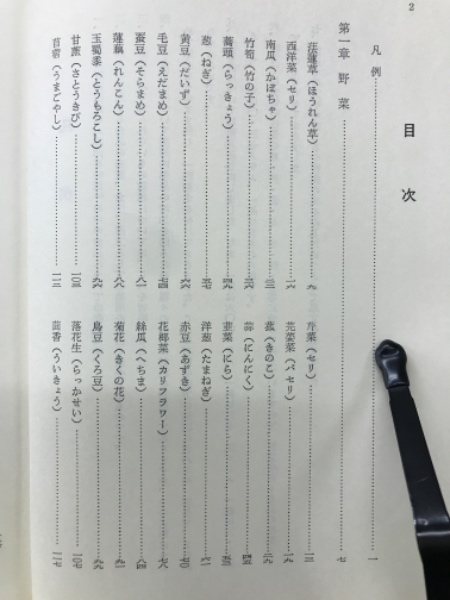 2
目次
凡例……一
第一章 野菜……七
菠薐草(ほうれん草)……九
芹菜(セリ)……一三
西洋菜(セリ)……一六
芫荽菜(パセリ)……一九
南瓜(かぼちゃ)……二三
菰(きのこ)……二九
竹筍(竹の子)……三六
蒜(にんにく)……四三
蕎頭(らっきょう)……四九
韮菜(にら)……五三
葱(ねぎ)……五七
洋葱(たまねぎ)……六一
黄豆(だいず)……六六
赤豆(あずき)……七〇
毛豆(えだまめ)……七四
花椰菜(カリフラワー)……七六
蚕豆(そらまめ)……八一
絲瓜(へちま)……八四
蓮藕(れんこん)……八八
菊花(きくの花)……九一
玉蜀黍(とうもろこし)……九六
烏豆(くろ豆)……九九
甘蔗(さとうきび)……一〇三
落花生(らっかせい)……一〇七
苜蓿(うまごやし)……一一三
茴香(ういきょう)……一一七